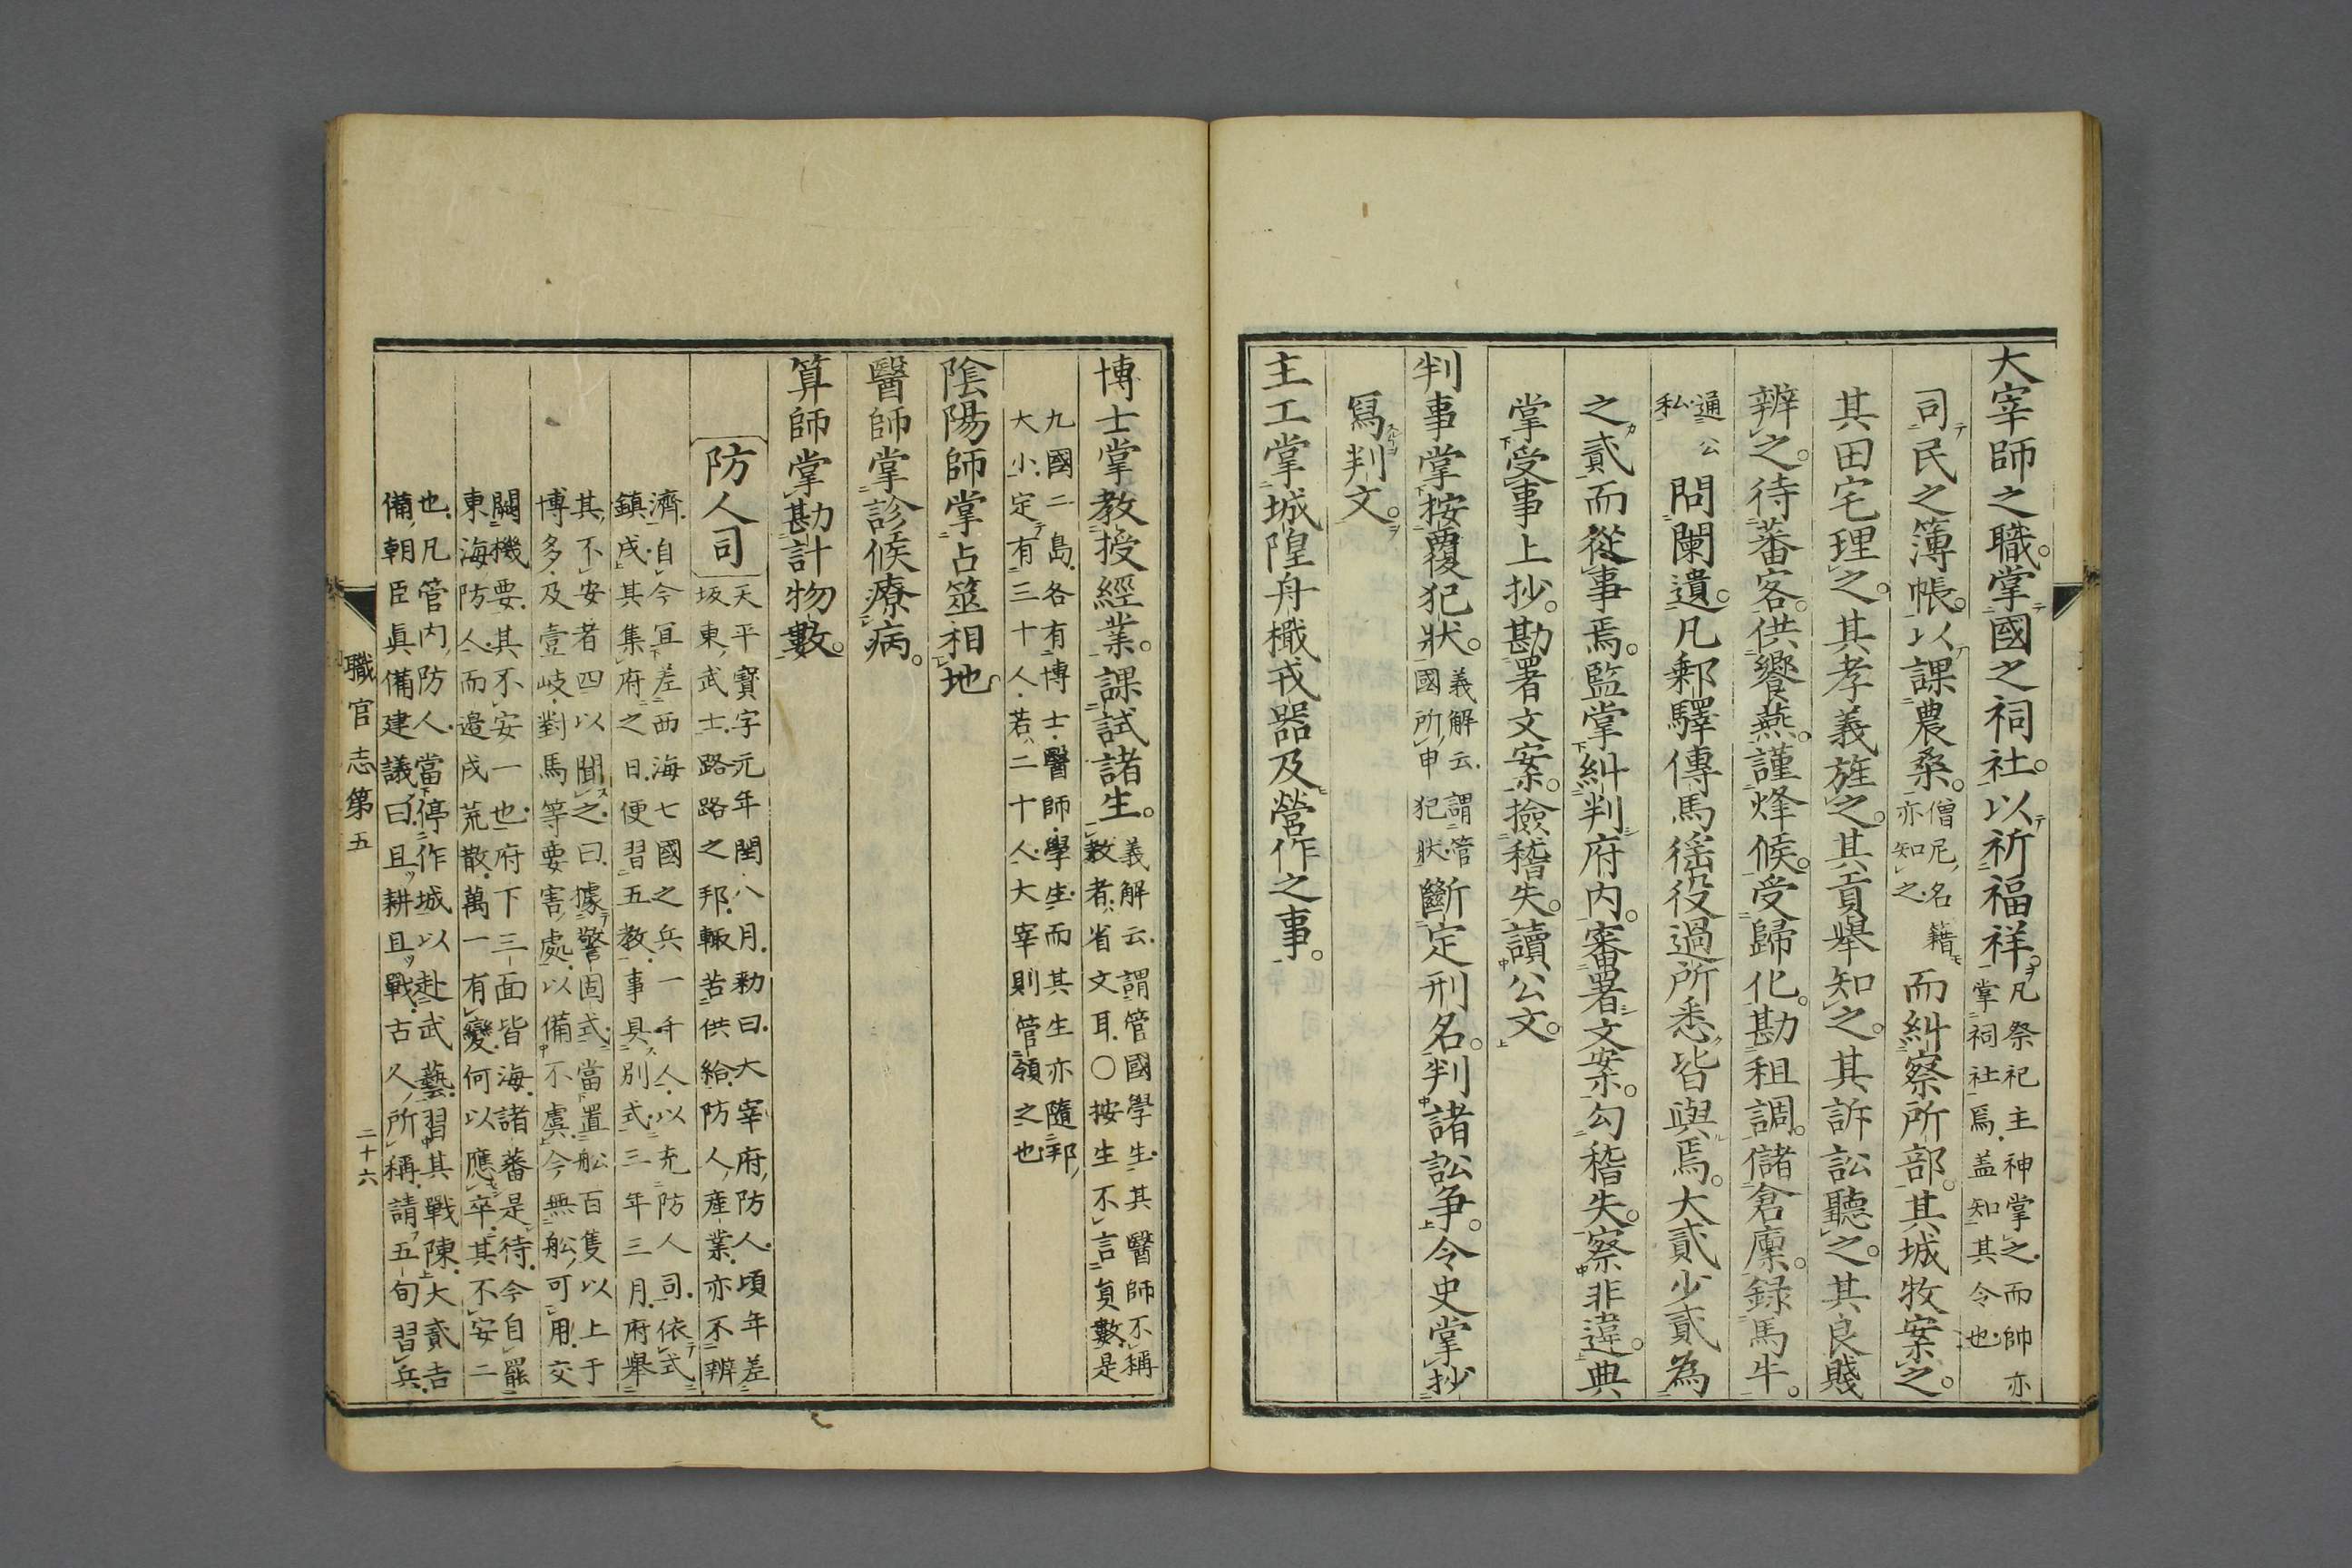 大宰師之職。掌國之祠社。以祈福祥。凡祭祀主神掌之而帥亦
掌祠社焉蓋知其令也
司民之簿帳。以課農桑。僧尼名籍
亦知之而糾察所部。其城牧案之。
其田宅理之。其孝義旌之。其貢舉知之。其訴訟聽之。其良賤
辨之。待蕃客。供饗燕。謹烽候。受歸化。勘租調。儲倉廩。録馬牛。
通公
私問闌遺。凡郵驛傳馬徭役過所悉皆與焉。大貳少貳為
之貳而從事焉。監掌糾判府内。審署文案。勾稽失。察非違。典
掌受事上抄。勘署文案。撿稽失。讀公文。
判事掌按覆犯狀。義解云謂管
國所申犯狀斷定刑名。判諸訟争。令史掌抄
寫判文。
主工掌城隍舟檝戎器及營作之事。
博士掌教授經業。課試諸生。義解云謂管國學生其醫師不稱
教者省文耳〇按生不言員數是
九國二島各有博士醫師學生而其生亦隨邦
大小定有三十人若二十人大宰則管領之也
陰陽師掌占筮相地
醫師掌診候療病。
算師掌勘計物數。
防人司 天平寳字元年閏八月勅曰大宰府防人頃年差
坂東武士路路之邦輙苦供給防人産業亦不辨
濟自今冝差西海七國之兵一千人以充防人司依式
鎮戍其集府之日便習五教事具別式三年三月府舉
其不安者四以聞之曰據警固式當置舩百隻以上于
博多及壹岐對馬等要害處以備不虞今無舩可用交
闕機要其不安一也府下三面皆海諸蕃是待今自罷
東海防人而邉戍荒散萬一有變何以應卒其不安二
也凡管内防人當停作城以赴武藝習其戰陳大貳吉
備朝臣眞備建議曰且耕且戰古人所稱請五旬習兵
職官志第五
二十六